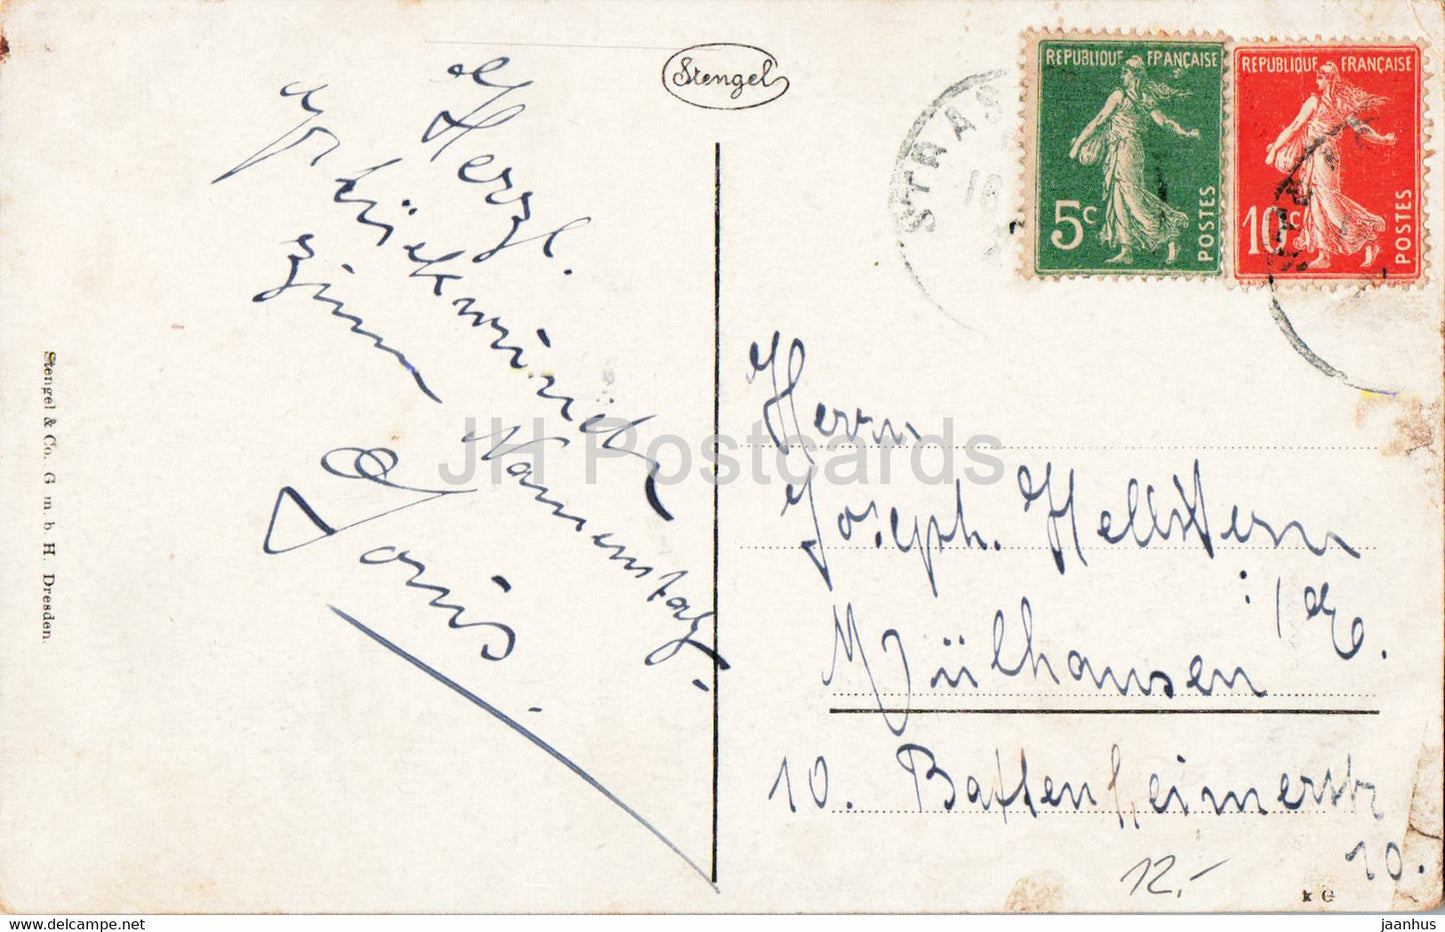 Stengel
Herzl.
Glückwünsche
zum Namenstag
Stengel & Co. G. m. b. H. Dresden.
STRAS
REPUBLIQUE FRANÇAISE
5c
POSTES
REPUBLIQUE FRANÇAISE
10c
POSTES
Herrn
Joseph. Hellstern
Mülhausen i/E.
10. Battenheimerstr
10.
12.-
JH Postcards
www.delcampe.net
jaanhus